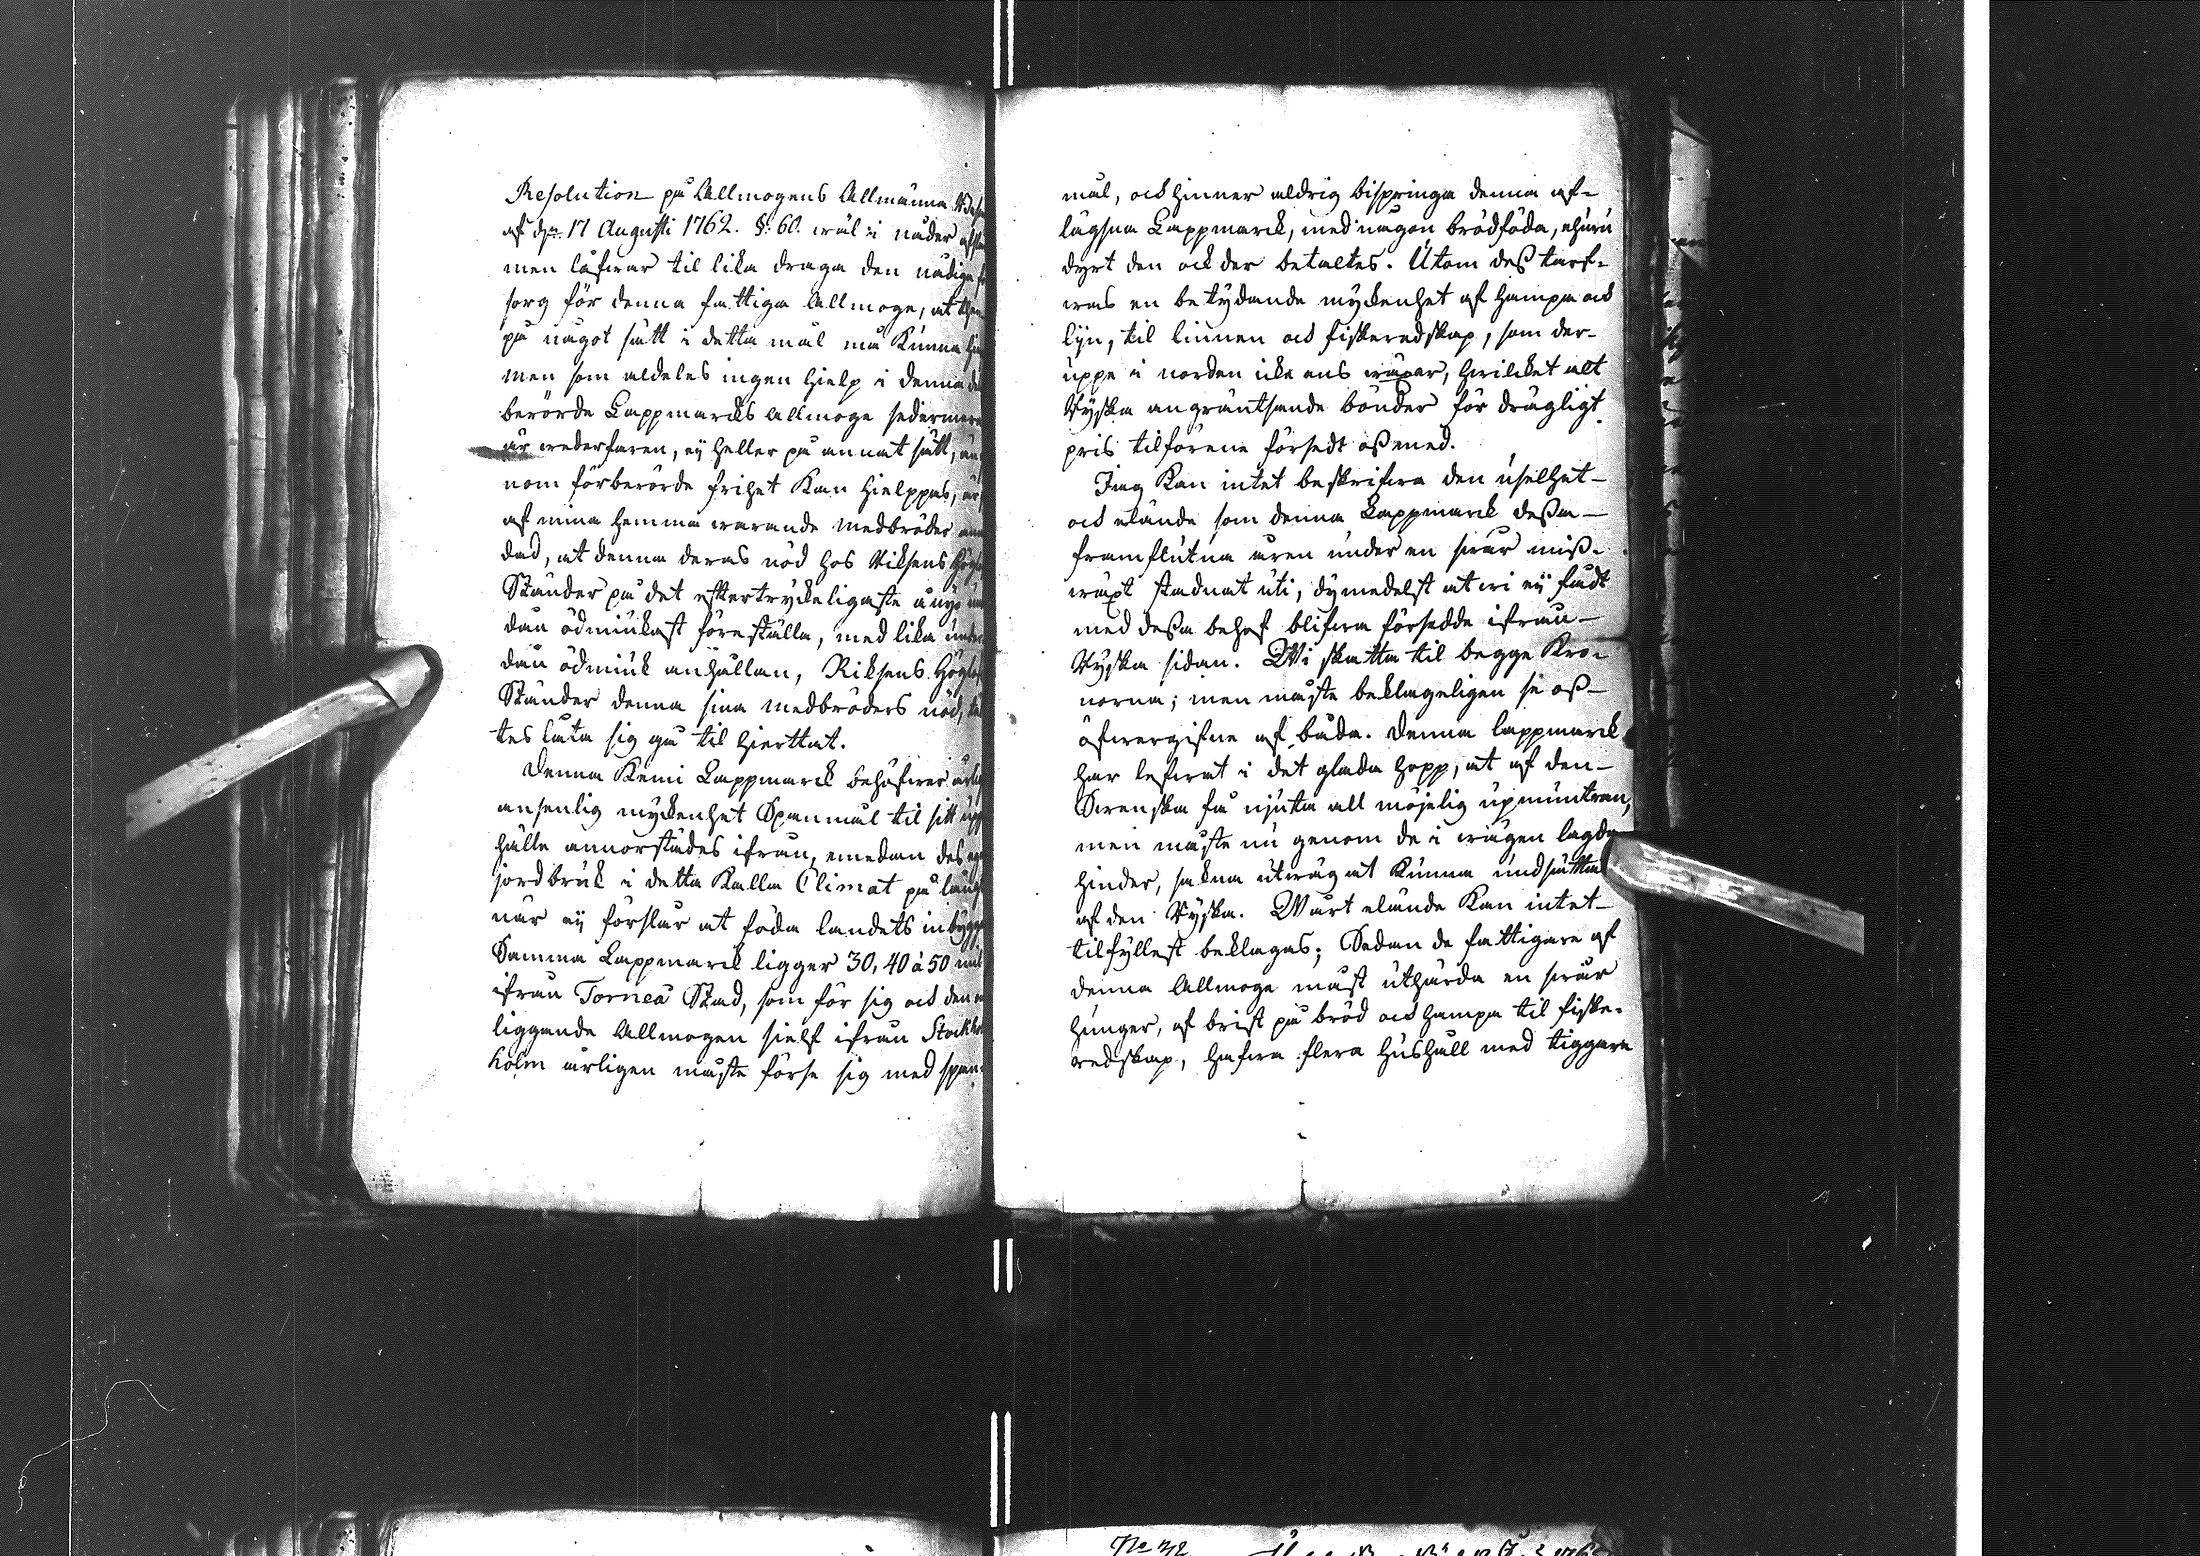 Resolution på Allmogens Allmänna
af d. 17 Augusti 1762. §. 60. wäl i nåder
men låfwar til lika draga den nådiga
sorg för denna fattiga Allmoge, at
på något sätt i detta mål må kunna
men som aldeles ingen hielp i denna
berörde Lappmarcks Allmoge sedermera
är wederfaren, eÿ heller på annat sätt,
nom förberörde frihet kan hielppas,
af mina hemma warande medbröder
dad, at denna deras nöd hos Riksens
Ständer på det eftertryckeligaste å nyo
dån ödmiukast föreställa, med lika
dån ödmiuk anhållan, Riksens
Ständer denna sina medbröders nöd,
tes låta sig gå til hierttat.
Denna Kemi Lappmarck behöfwer
ansenlig myckenhet Spanmål til sitt
hälle annorstädes ifrån, emedan des
jordbruk i detta kalla Climat på
när eÿ förslår at föda landets
Samma Lappmarck ligger 30, 40 à 50
ifrån Torneå Stad, som för sig och den
liggande Allmogen sielf ifrån Stock
holm årligen måste förse sig med span-
mål, och hinner aldrig bispringa denna af-
lägsna Lappmarck, med någon brödföda, ehuru
dyrt den ock der betaltes. Utom deß tarf-
was en betydande myckenhet af hampa och
lÿn, til linnen och fiskeredskap, som der-
uppe i norden icke ens wäxer, hwilcket alt
Ryska angräntsande bönder för drägligt
pris tilförene försedt oß med.
Jag kan intet beskrifwa den uselhet
och elände som denna Lappmarck deßa
framflutna åren under en swår miß-
wäxt stadnat uti, dymedelst at wi eÿ fådt
med deßa behof blifwa försedde ifrån
Ryska sidan. Wi skatta til begge Kro-
norna; men måste beklageligen se oß
öfwergifne af båda. Denna lappmarck
har lefwat i det glada hopp, at af den
Swenska få njuta all möjelig upmuntran,
men måste nu genom de i wägen lagda
hinder, sakna utwäg at kunna undsättas
af den Ryska. Wårt elände kan intet
tilfyllest beklagas; Sedan de fattigare af
denna Allmoge måst uthärda en swår
hunger, af brist på bröd och hampa til fiske-
redskap, hafwa flera hushåll med tiggare